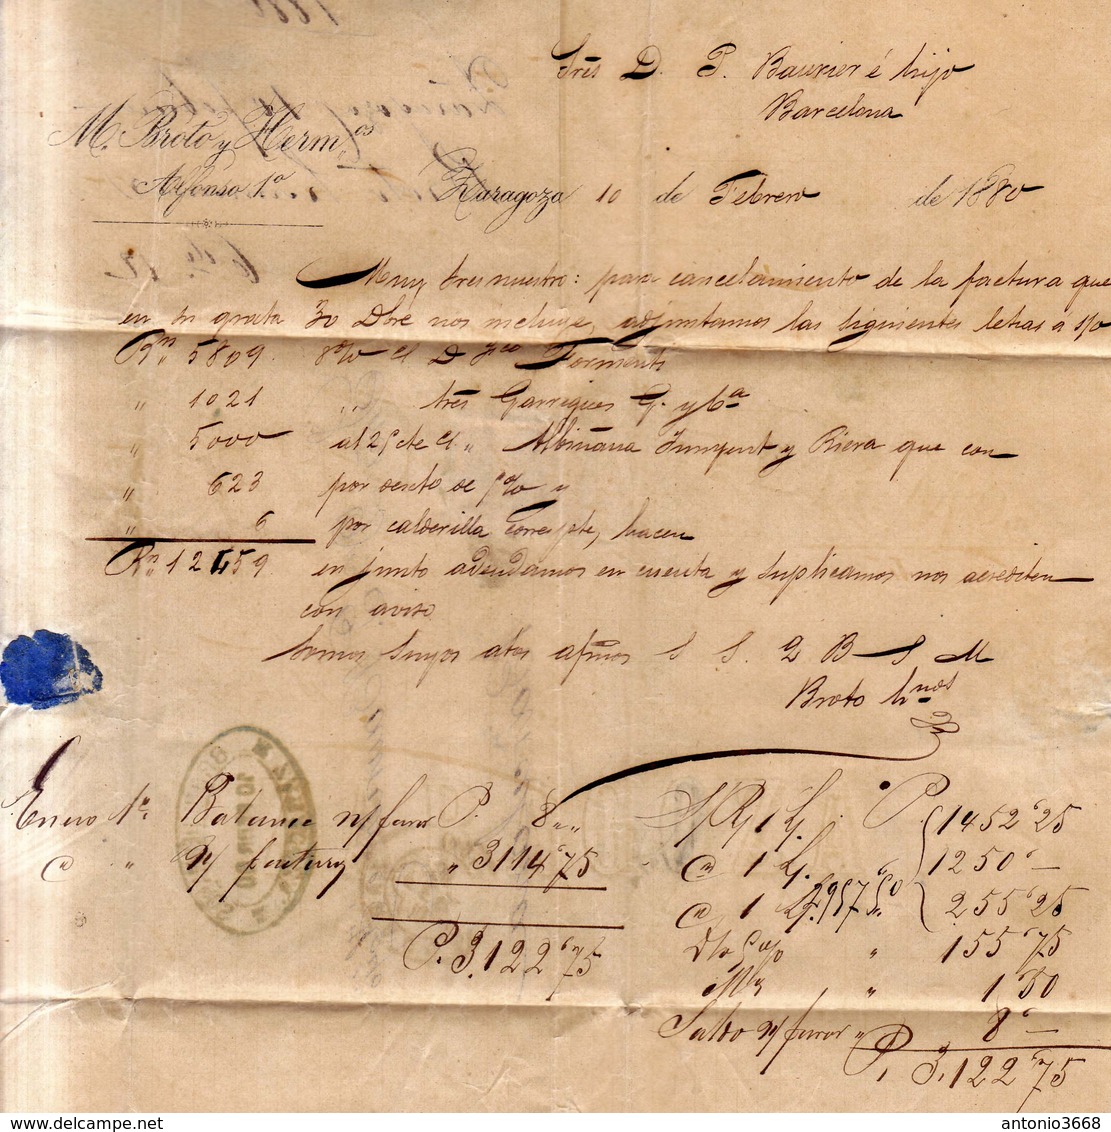 Sres D. P. Baurier é hijo
Barcelona
M. Broto y Herm.os
Alfonso 1.o
Zaragoza 10 de Febrero de 1880
Muy Sres nuestro: para cancelamiento de la factura que
en su grata 30 Dbre nos incluye, adjuntamos las siguientes letras a s/o
Rn 5809 8 d/v c/ D Fco Torments
" 1021 " Sres Garrigues G. y Ca
" 5000 al 25 cte c/ " Albiñana Junyent y Riera que con
" 623 por descto de 5% y
" 6 por calderilla correspte, hacen
Rn 12459 en junto adeudamos en cuenta y suplicamos nos acrediten
con aviso
Somos Suyos atos afmos S S. Q B S M
Broto hnos
Enero 1o Balance n/ favor P. 8 " "
" " n/ factura " 3114'75
P. 3.122'75
S/R/ 1 L. P. 1452'25
1 L. 1250' —
1 L. 255'25
2.957'50
Dto 5 % " 155'75
" 1'50
Saldo n/ favor " 8' —
P. 3.122'75
antonio3668